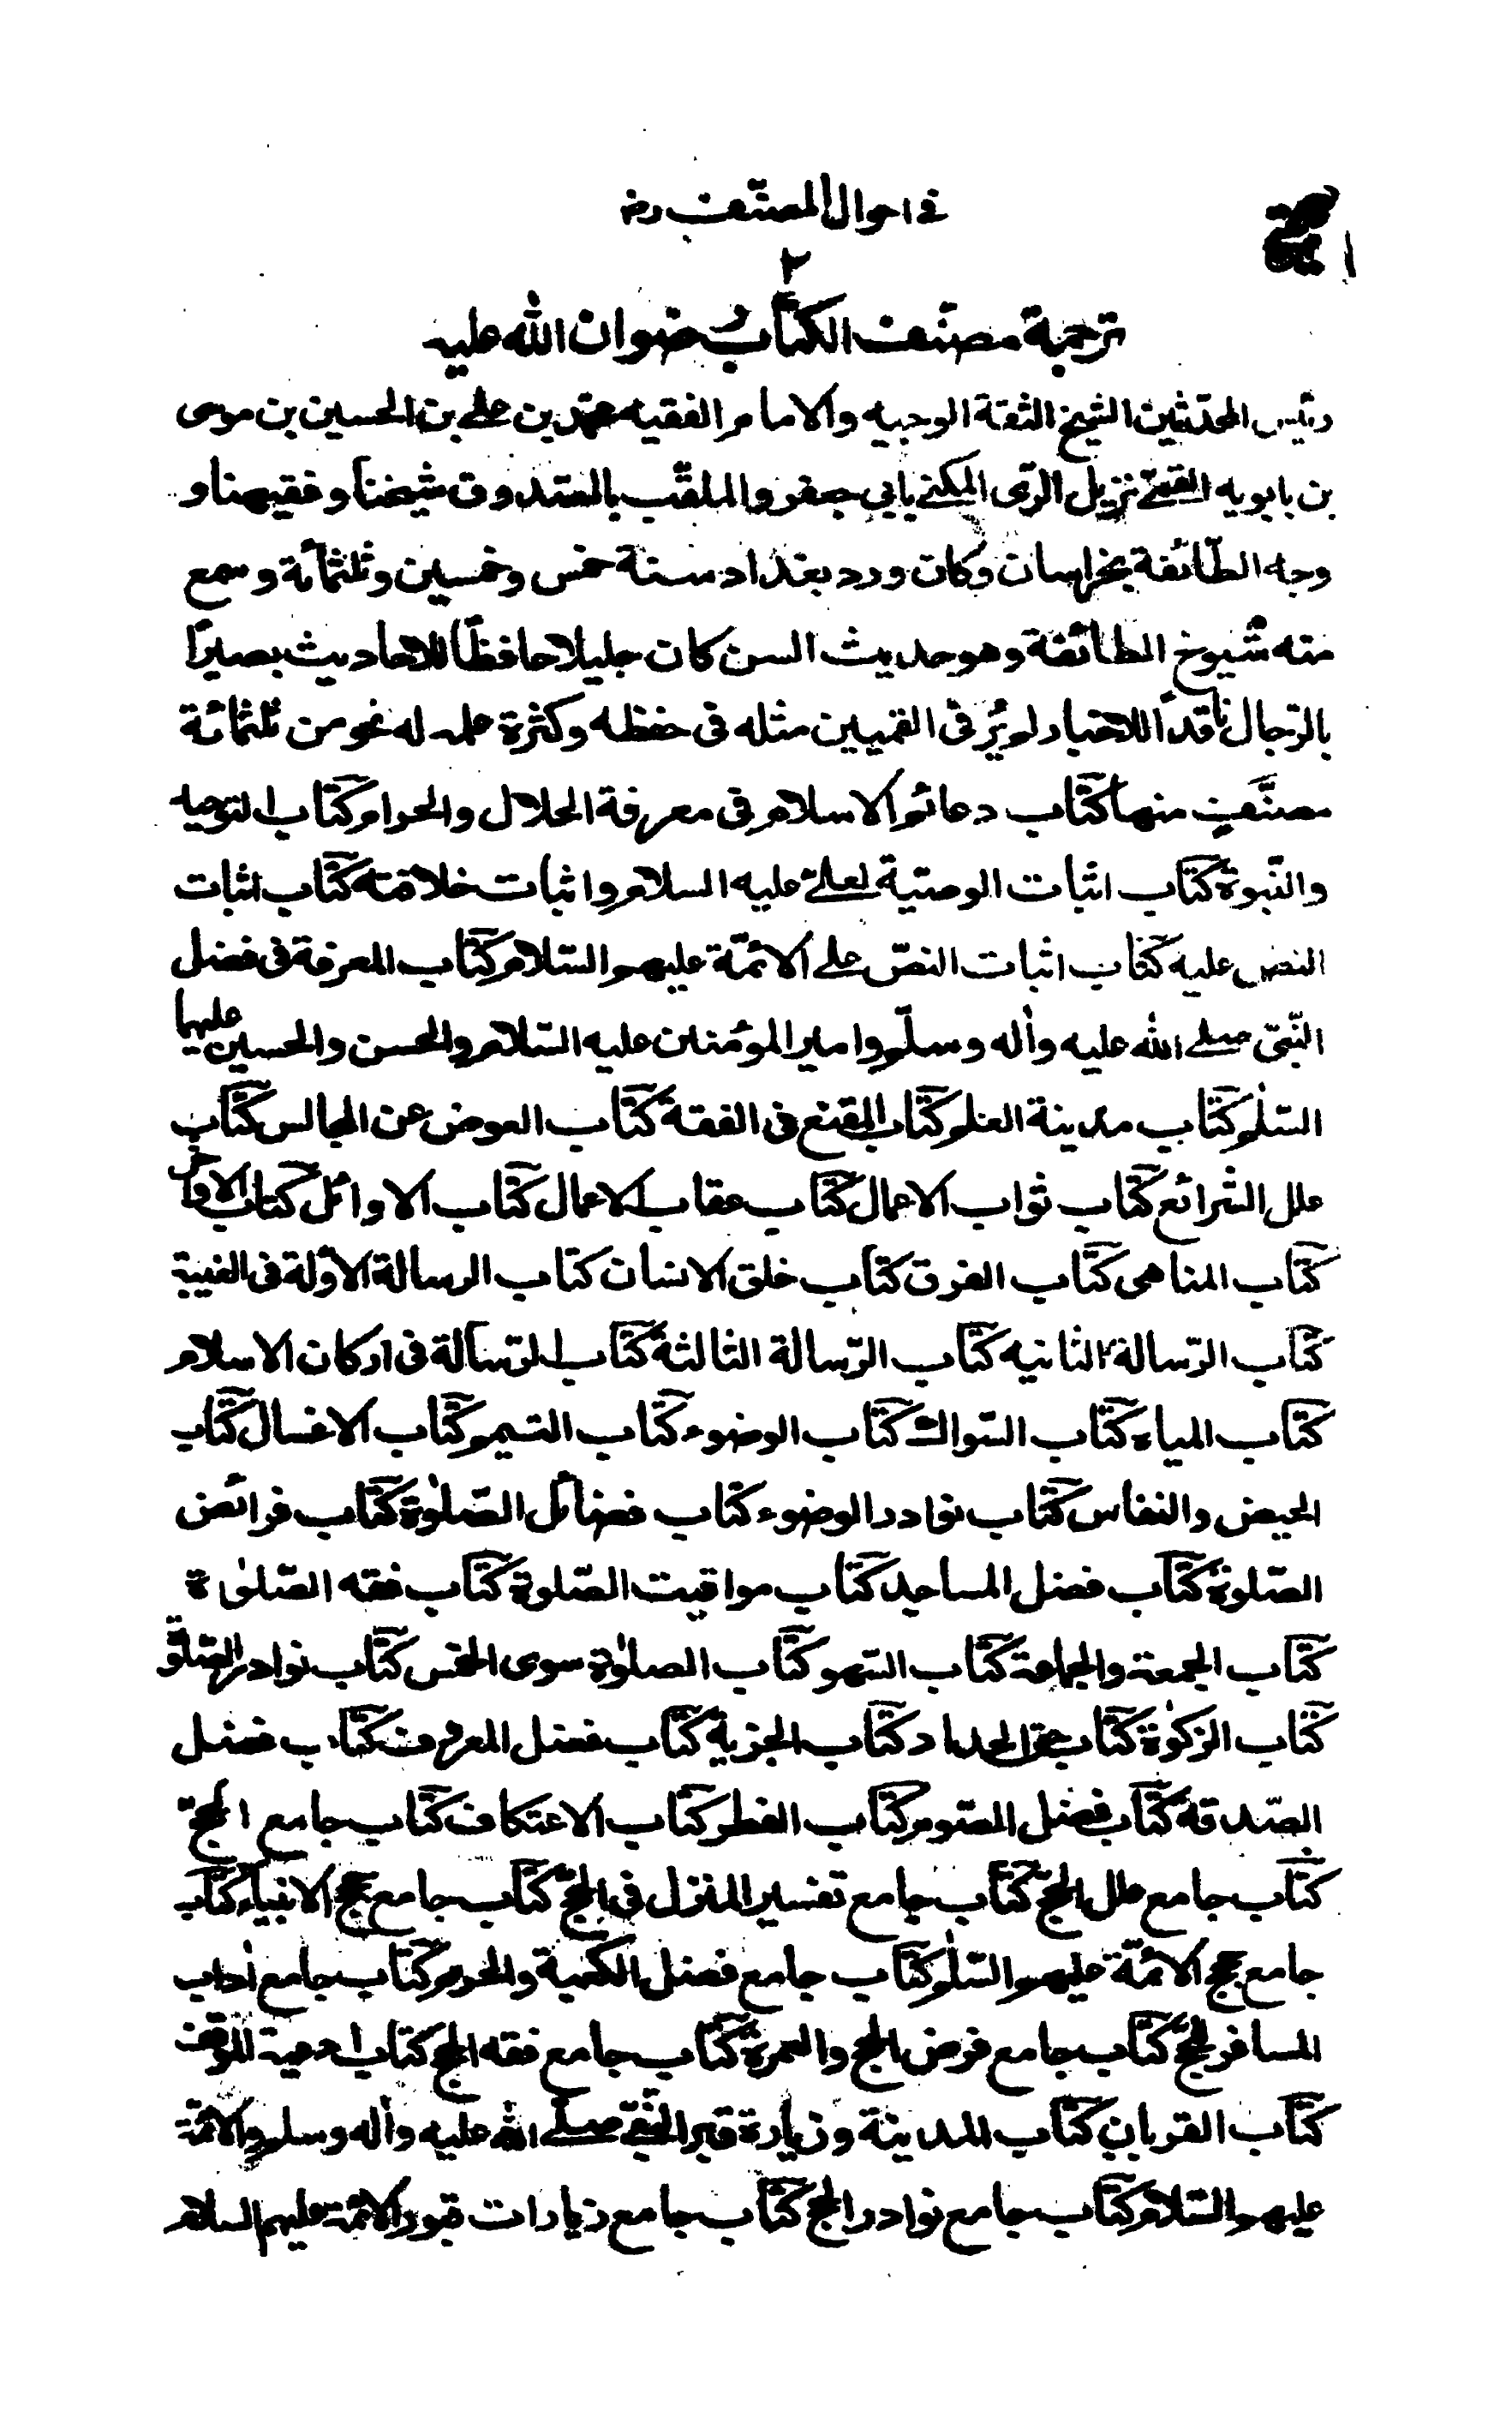 فى احوال المصنّف رض
٢
ترجمة مصنّف الكتاب رضوان الله عليه
رئيس المحدّثين الشيخ الثقة الوجيه والامام الفقيه محمّد بن على بن الحسين بن موسى
بن بابويه القمّى نزيل الرّى المكنى بابى جعفر والملقّب بالصّدوق شيخنا وفقيهنا و
وجه الطّائفة بخراسان وكان ورد بغداد سنة خمس وخمسين وثلثمائة وسمع
منه شيوخ الطائفة وهو حديث السن كان جليلا حافظًا للاحاديث بصيرًا
بالرّجال ناقدًا للاخبار لم يُرَ فى القميين مثله فى حفظه وكثرة علمه له نحو من ثلثمائة
مصنَّفٍ منها كتاب دعائم الاسلام فى معرفة الحلال والحرام كتاب التوحيد
والنّبوة كتاب اثبات الوصيّة لعلىّ عليه السلام واثبات خلافته كتاب اثبات
النص عليه كتاب اثبات النصّ على الائمّة عليهم السّلام كتاب المعرفة فى فضل
النّبىّ صلى الله عليه واٰله وسلّم وامير المؤمنين عليه السّلام والحسن والحسين عليهما
السّلٰم كتاب مدينة العلم كتاب المقنع فى الفقه كتاب العوض عن المجالس كتاب
علل الشرائع كتاب ثواب الاعمال كتاب عقاب الاعمال كتاب الاوائل كتاب الاواخر
كتاب المناهى كتاب الفرق كتاب خلق الانسان كتاب الرسالة الاوّلة فى الغيبة
كتاب الرّسالة الثانيه كتاب الرّسالة الثالثة كتاب الرّسالة فى اركان الاسلام
كتاب المياه كتاب السّواك كتاب الوضوء كتاب التيمم كتاب الاغسال كتاب
الحيض والنفاس كتاب نوادر الوضوء كتاب فضائل الصّلوٰة كتاب فرائض
الصّلوة كتاب فضل المساجد كتاب مواقيت الصّلوة كتاب فقه الصّلوٰة
كتاب الجمعة والجماعة كتاب السّهو كتاب الصلوٰة سوى الخمس كتاب نوادر الصّلوة
كتاب الزكوٰة كتاب حق الجداد كتاب الجزية كتاب فضل المعروف كتاب فضل
الصّدقة كتاب فضل الصّوم كتاب الفطر كتاب الاعتكاف كتاب جامع الحجّ
كتاب جامع علل الحجّ كتاب جامع تفسير المنزل فى الحجّ كتاب جامع حجج الانبياء كتاب
جامع حجج الائمّة عليهم السّلٰم كتاب جامع فضل الكعبة والحرم كتاب جامع اٰداب
المسافر للحجّ كتاب جامع فرض الحج والعمرة كتاب جامع فقه الحج كتاب ادعية الموقف
كتاب القربان كتاب المدينة وزيارة قبر النّبى صلى الله عليه واٰله وسلم والائمّة
عليهم السّلام كتاب جامع نوادر الحج كتاب جامع زيارات قبور الائمّة عليهم السلام